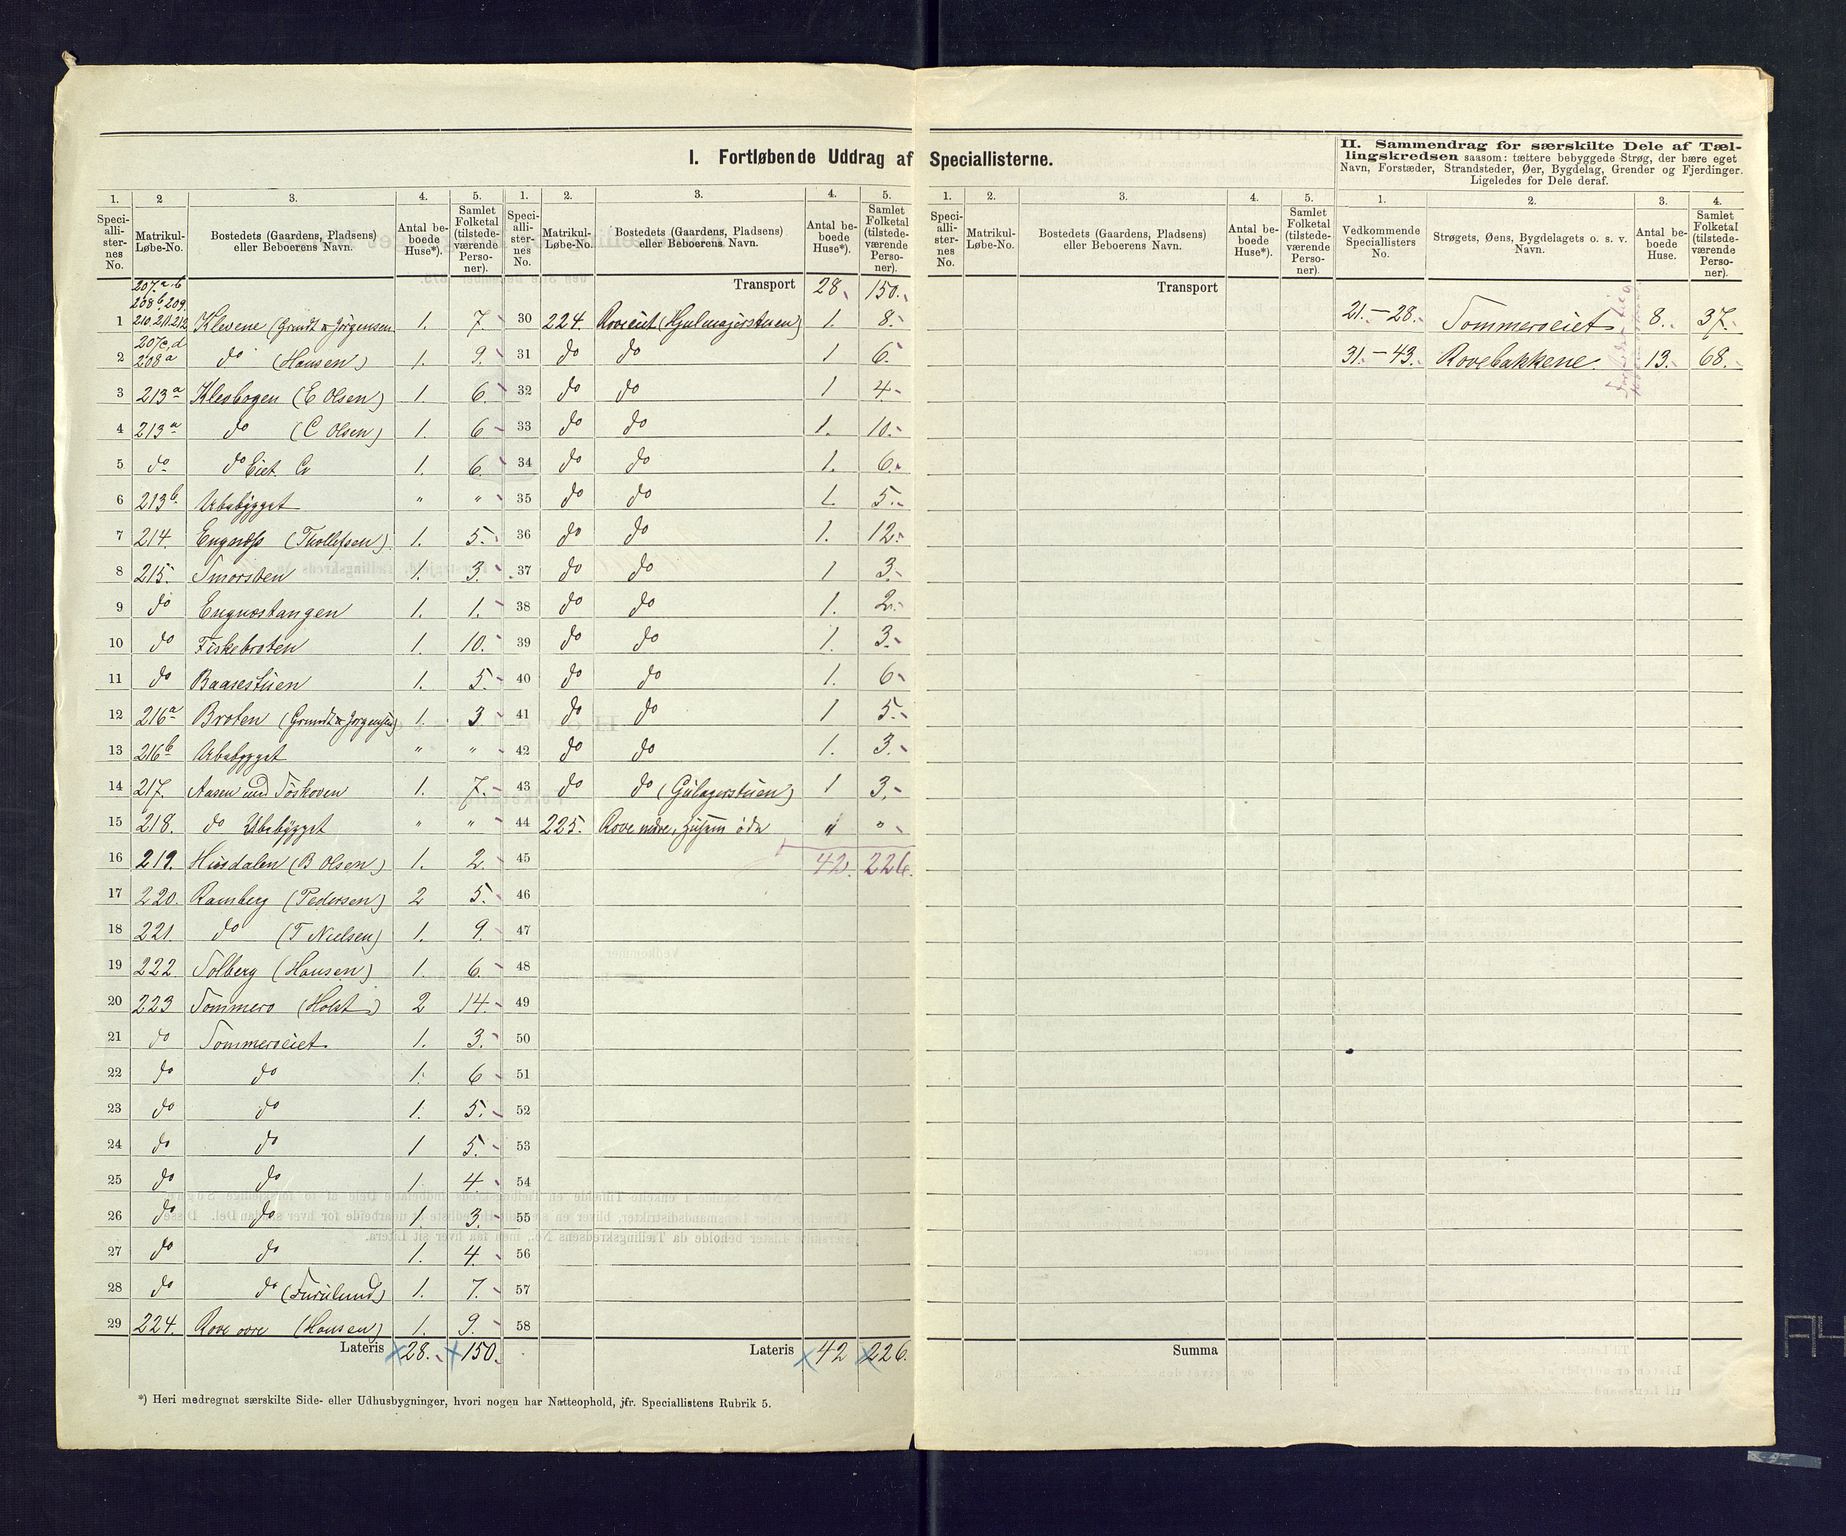 I. Fortløbende Uddrag af Speciallisterne.
II. Sammendrag for særskilte Dele af Tæl-
lingskredsen saasom: tættere bebyggede Strøg, der bære eget
Navn, Forstæder, Strandsteder, Øer, Bygdelag, Grender og Fjerdinger.
Ligeledes for Dele deraf.
1. 2 3. 4. 5.
Speciallisternes No. Matrikul-Løbe-No. Bostedets (Gaardens, Pladsens) eller Beboerens Navn. Antal beboede Huse*). Samlet Folketal (tilstedeværende Personer).
207 a, b
208 b, 209
1 210, 211, 212 Klevene (Grundt & Jørgensen 1. 7.
207 c, d
2 208 a do (Hansen) 1. 9.
3 213 a Klevbogen (E Olsen) 1. 6.
4 213 a do (C Olsen) 1. 6
5 do do Eiet 1. 6.
6 213 b. Ubebÿgget " "
7 214. Engnæs (Thollefsen) 1. 5.
8 215. Smorsten 1. 3.
9 do Engnæstangen 1. 1.
10 do Fiskebroten 1. 10.
11 do Baasestuen 1. 5.
12 216 a Broten (Grundt & Jørgensen) 1. 3
13 216 b Ubebygget " "
14 217. Aasen med Toskoven 1. 7.
15 218. do Ubebÿgget " "
16 219. Husdalen (B Olsen) 1. 2.
17 220. Ramberg (Pedersen) 2 5.
18 221. do (T Nielsen) 1. 9.
19 222. Solberg (Hansen) 1. 6.
20 223 Sommero (Holst) 2 14.
21 do Sommeroeiet 1. 3.
22 do do 1. 6
23 do do 1. 5.
24 do do 1 5.
25 do do 1 4
26 do do 1. 3.
27 do do 1. 4.
28 do do (Furulund) 1. 7.
29 224. Rove ovre (Hansen) 1. 9.
Lateris 28. 150.
*) Heri medregnet særskilte Side- eller Udhusbygninger, hvori nogen har Natteophold, jfr. Speciallistens Rubrik 5.
1. 2. 3. 4. 5.
Speciallisternes No. Matrikul-Løbe-No. Bostedets (Gaardens, Pladsens) eller Beboerens Navn. Antal beboede Huse*). Samlet Folketal (tilstedeværende Personer).
Transport 28. 150.
30 224. Roveeiet (Hjulmagerstuen) 1. 8.
31 do do 1 6.
32 do do 1 4.
33 do do 1. 10.
34 do do 1. 6.
35 do do 1. 5.
36 do do 1. 12.
37 do do 1 3.
38 do do 1. 2.
39 do do 1. 3.
40 do do 1. 6
41 do do 1 5.
42 do do 1. 3.
43 do do (Gulagerstuen) 1 3.
44 225. Rove nedre, øde " "
45 42. 226.
46
47
48
49
50
51
52
53
54
55
56
57
58
Lateris 42 226.
1. 2. 3. 4. 5.
Speciallisternes No. Matrikul-Løbe-No. Bostedets (Gaardens, Pladsens) eller Beboerens Navn. Antal beboede Huse*). Samlet Folketal (tilstedeværende Personer).
Transport
Summa
1. 2. 3. 4.
Vedkommende Speciallisters No. Strøgets, Øens, Bygdelagets o. s. v. Navn. Antal beboede Huse. Samlet Folketal (tilstedeværende Personer).
21. – 28. Sommeroeiet 8. 37.
31. – 43. Rovebakkene. 13. 68.